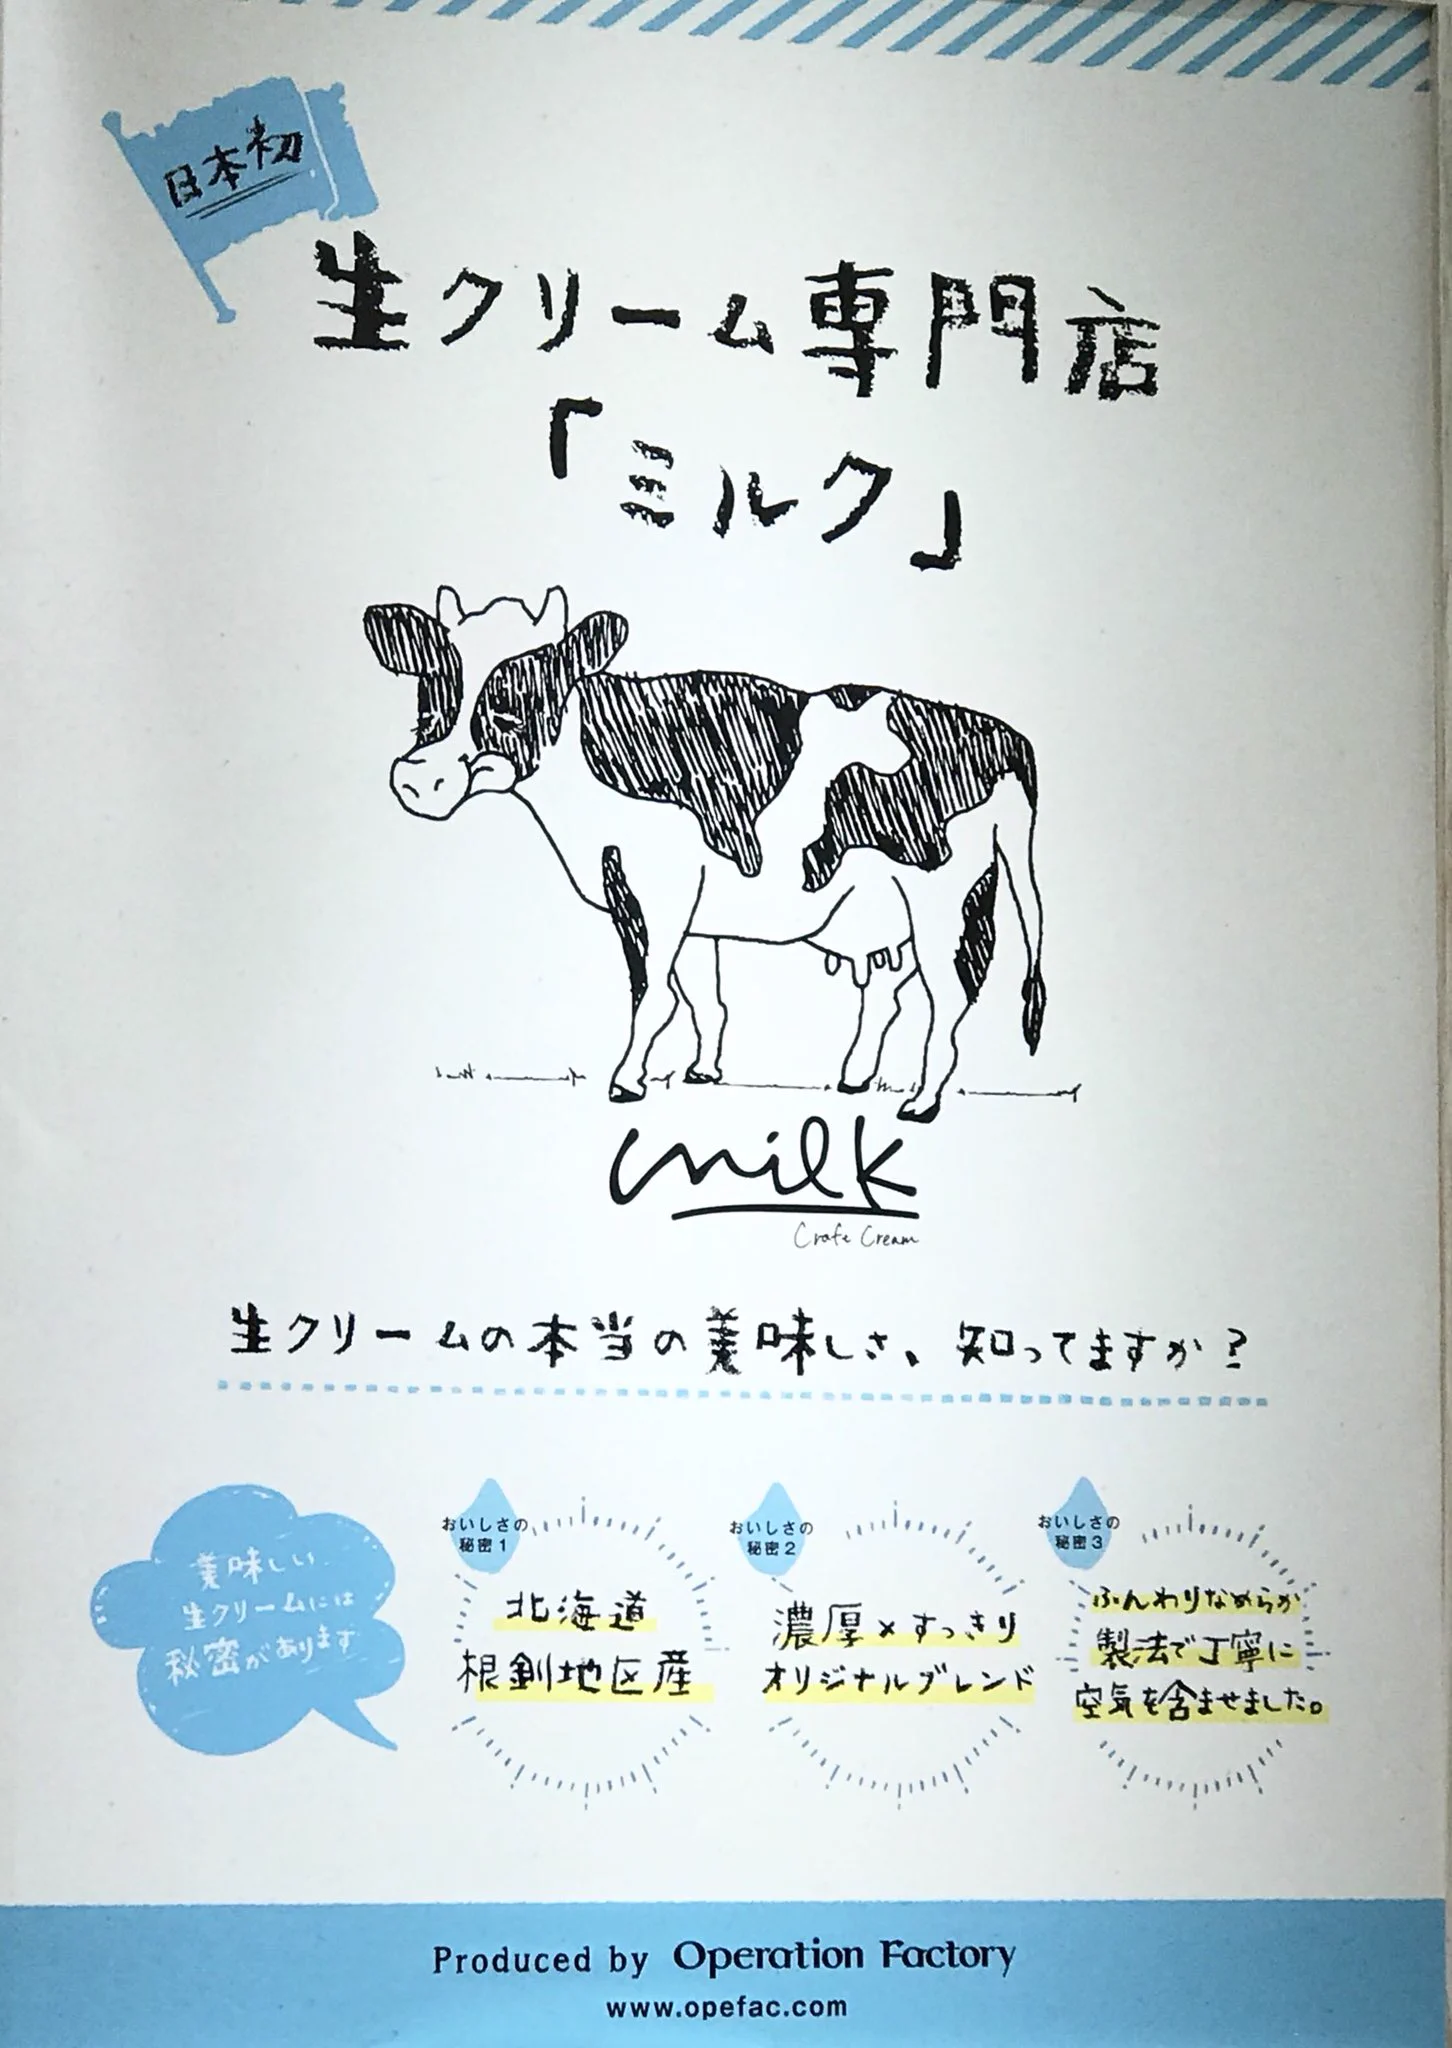 日本初
生クリーム専門店
「ミルク」
milk
Crafe Cream
生クリームの本当の美味しさ、知ってますか?
美味しい
生クリームには
秘密があります
おいしさの
秘密1
北海道
根釧地区産
おいしさの
秘密2
濃厚×すっきり
オリジナルブレンド
おいしさの
秘密3
ふんわりなめらか
製法で丁寧に
空気を含ませました。
Produced by Operation Factory
www.opefac.com